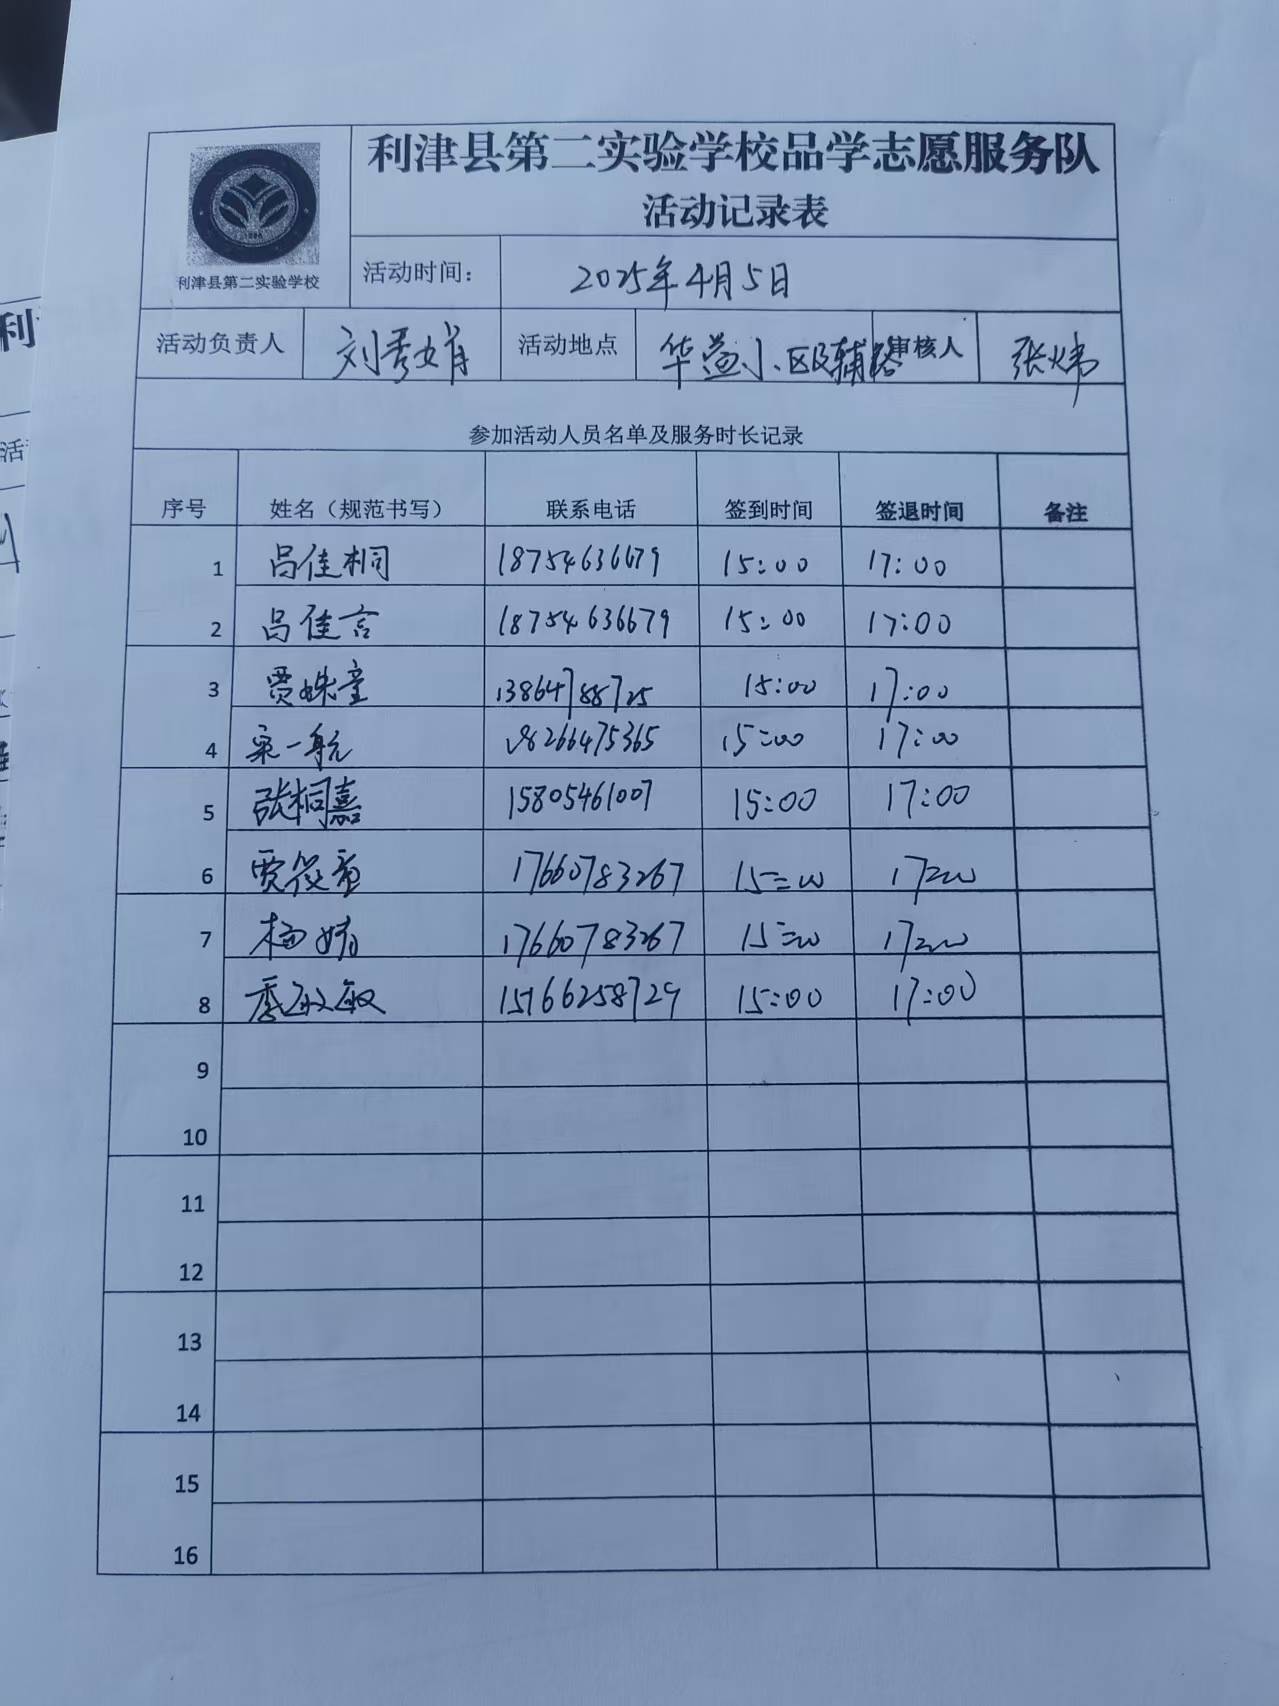 利津县第二实验学校品学志愿服务队
活动记录表
利津县第二实验学校
活动时间： 2025年4月5日
活动负责人 刘秀娟 活动地点 华益小区及辅路 审核人 张炜
参加活动人员名单及服务时长记录
序号 姓名（规范书写） 联系电话 签到时间 签退时间 备注
1 吕佳桐 18754636679 15:00 17:00
2 吕佳言 18754636679 15:00 17:00
3 贾姝童 13864788725 15:00 17:00
4 宋一航 18266475365 15:00 17:00
5 张桐嘉 15805461007 15:00 17:00
6 贾筱童 17660783267 15:00 17:00
7 杨婧 17660783267 15:00 17:00
8 季敏敏 15166258729 15:00 17:00
9
10
11
12
13
14
15
16
利
活